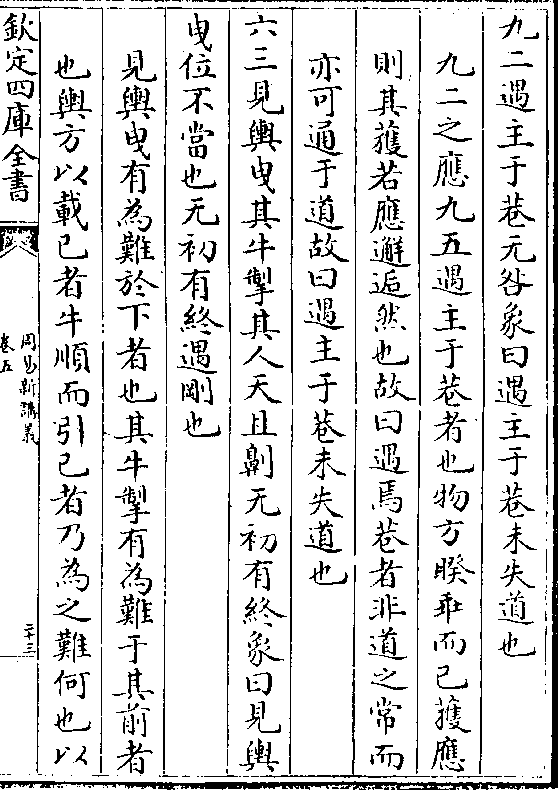 九二遇主于巷无咎象曰遇主于巷未失道也
九二之應九五遇主于巷者也物方睽乖而已獲應
則其獲若應邂逅然也故曰遇焉巷者非道之常而
亦可通于道故曰遇主于巷未失道也
六三見輿曳其牛掣其人天且劓无初有終象曰見輿
曳位不當也无初有終遇剛也
見輿曳有為難於下者也其牛掣有為難于其前者
也輿方以載已者牛順而引已者乃為之難何也以
欽定四庫全書
周易新講義
卷五
二十三